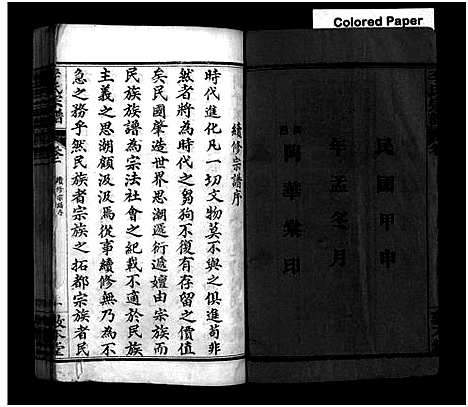 Colored Paper
民國甲申
年孟冬月
陶華棠印
續修宗譜序
時代進化凡一切文物莫不與之俱進苟非
然者將為時代之芻狗不復有存留之價值
矣民國肇造世界思湖遞衍遞嬗由宗族而
民族族譜為宗法社會之紀載不適於民族
主義之思湖顧汲汲焉從事續修無乃為不
急之務乎然民族者宗族之拓都宗族者民
氏宗譜
續修宗譜序
一
敦本堂